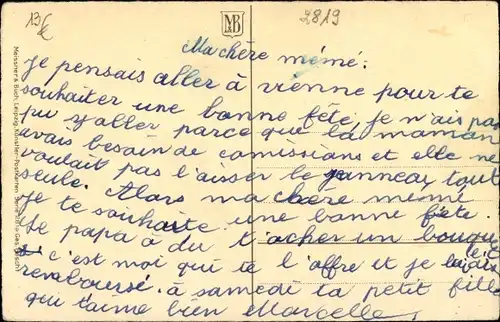 13€
MB
2819
Ma chère mémé.
je pensais aller à vienne pour te
souhaiter une bonne fête, je n'ais pas
pu y aller parce que la maman
avais besoin de comissions et elle ne
voulait pas l'aisser le janneau tout
seule. Alors ma chère mémé
je te souhaite une bonne fête.
Le papa à du t'acher un bouquet
c'est moi que te l'offre et je lai
remboursé. à samedi ta petit fille
qui t'aime bien Marcelle
Meissner & Buch, Leipzig, Künstler-Postkarten